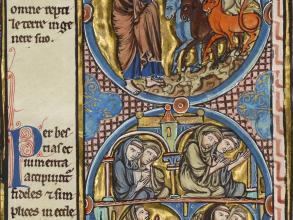 omne repti
le terre in ge
nere suo.
Per bes
tias et
iumenta
accipiunt᷑
fideles & sim
plices in eccle